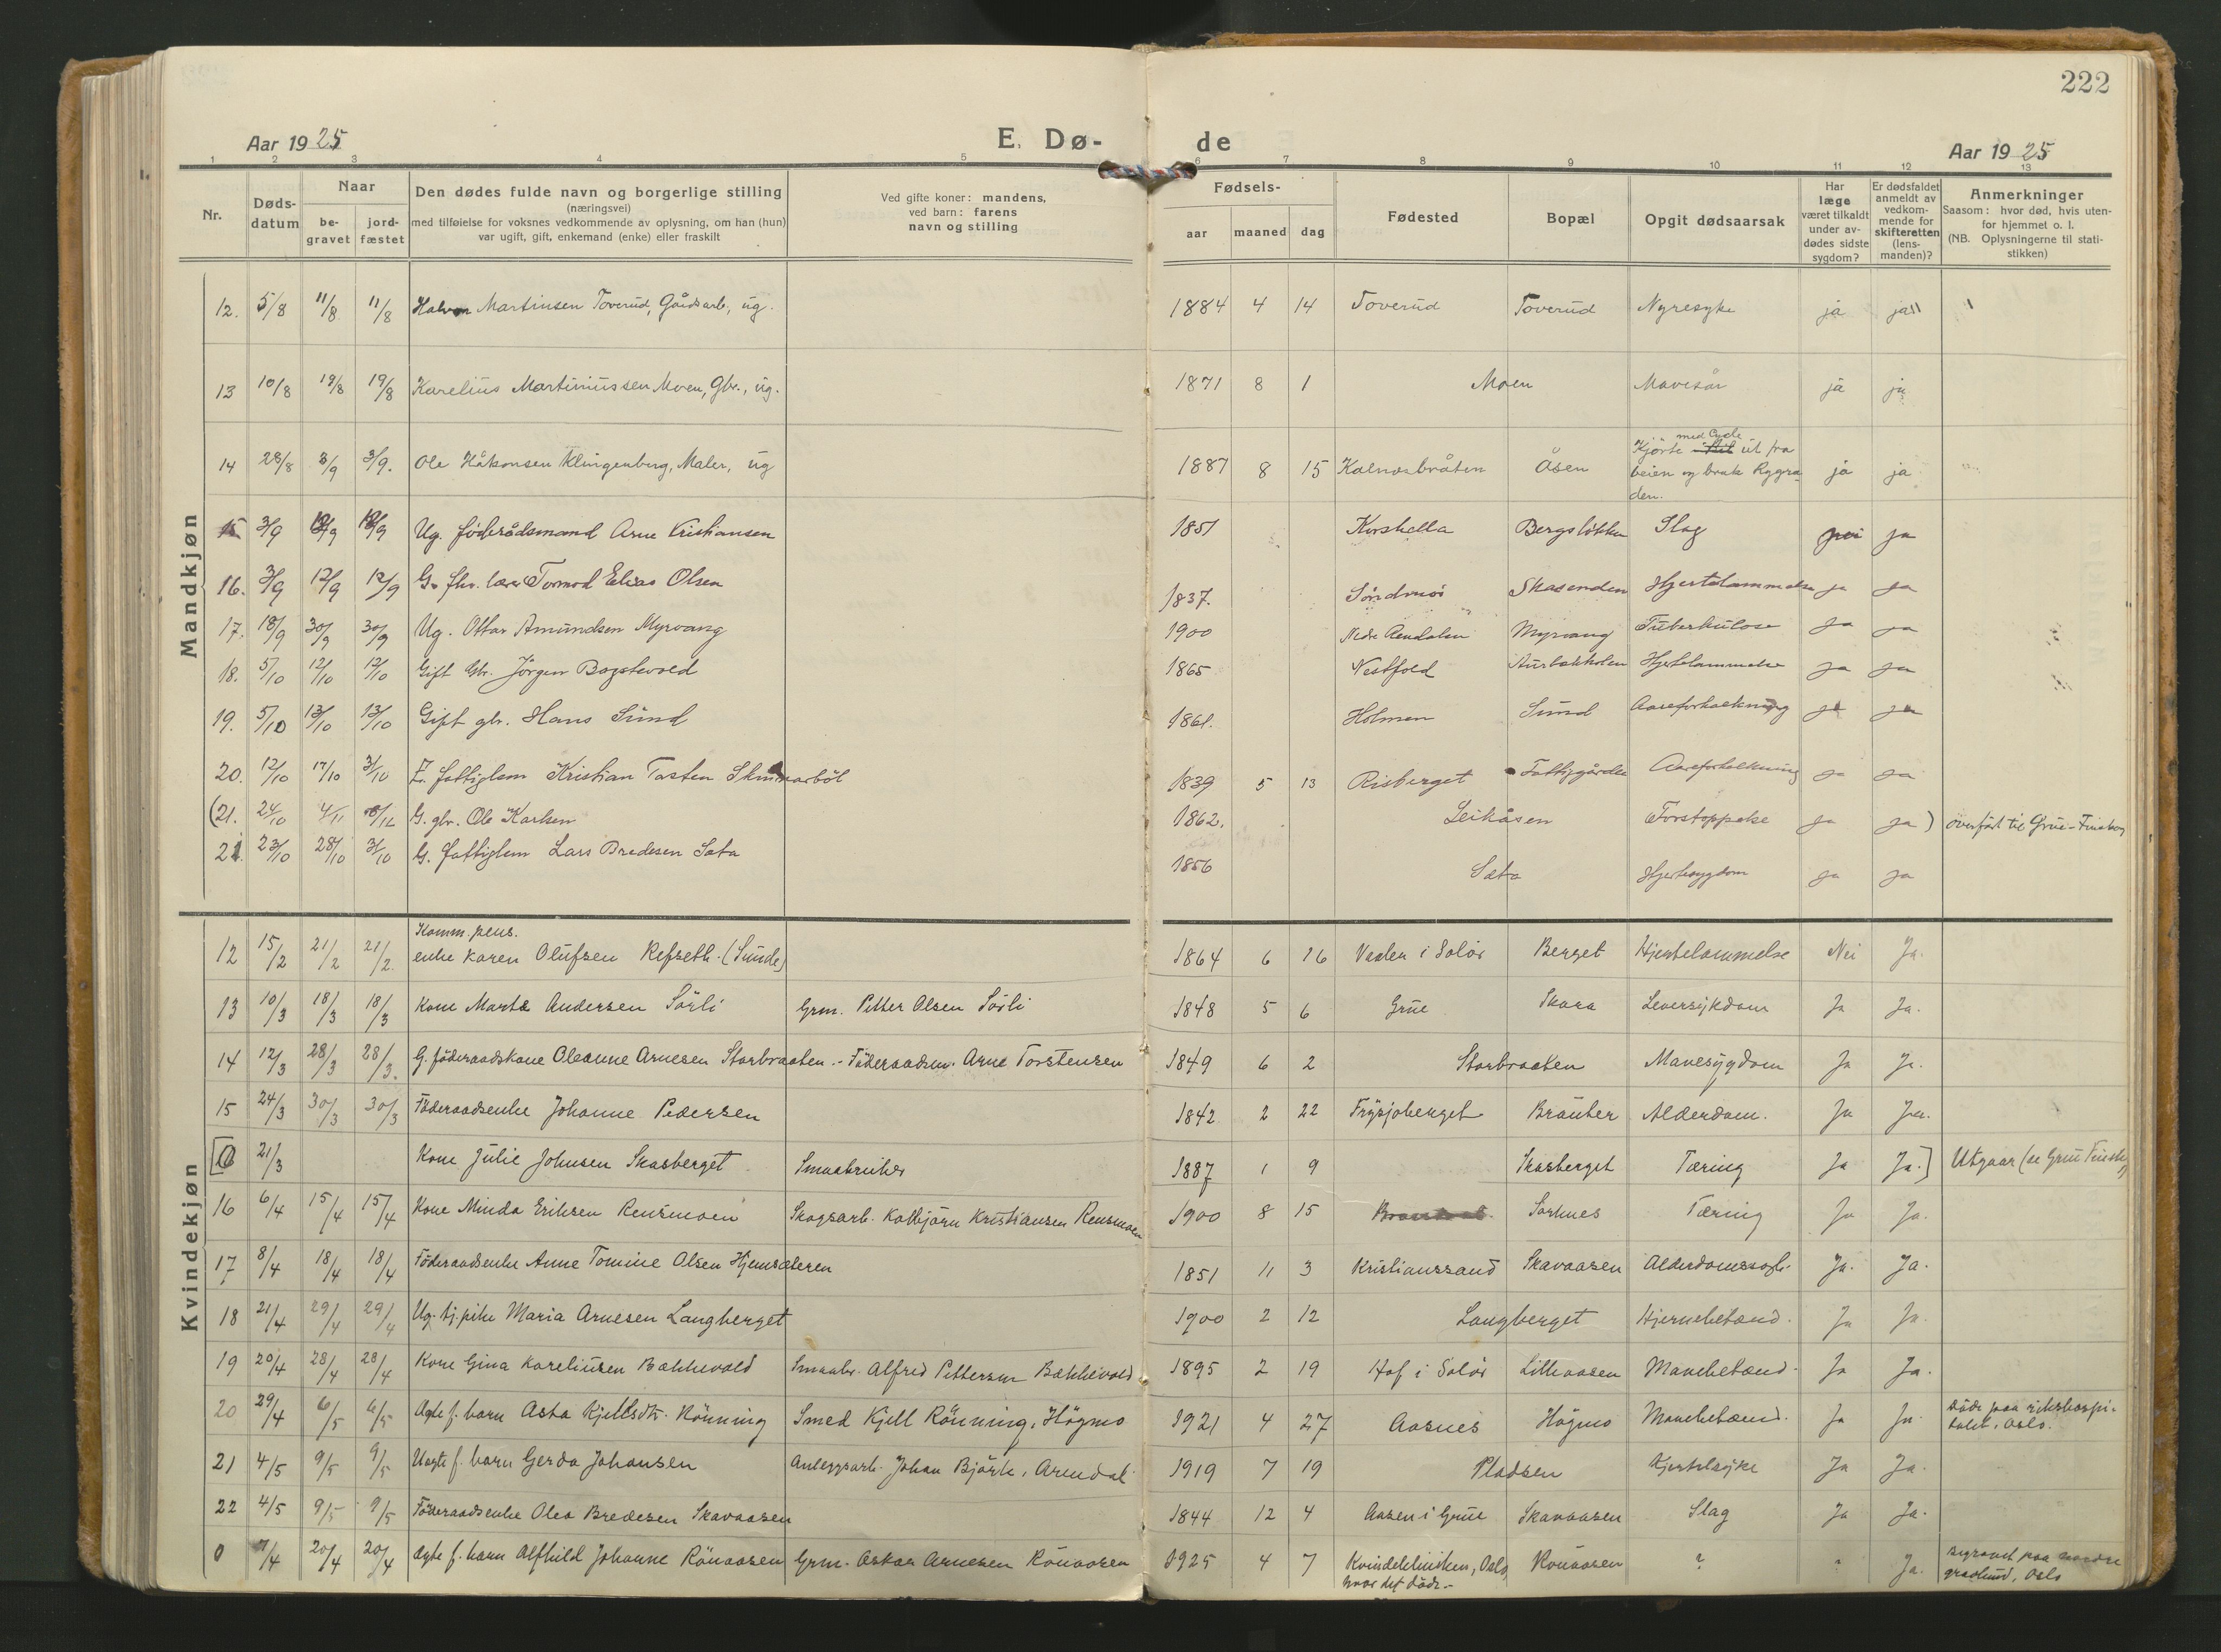 222
Aar 1925
E. Dø-
de
Aar 1925
1 2 3 4 5 6 7 8 9 10 11 12 13
Nr.
Døds-
datum
Naar
be-
gravet
jord-
fæstet
Den dødes fulde navn og borgerlige stilling
(næringsvei)
med tilføielse for voksnes vedkommende av oplysning, om han (hun)
var ugift, gift, enkemand (enke) eller fraskilt
Ved gifte koner: mandens,
ved barn: farens
navn og stilling
Fødsels-
aar maaned dag
Fødested
Bopæl
Opgit dødsaarsak
Har
læge
været tilkaldt
under av-
dødes sidste
sygdom?
Er dødsfaldet
anmeldt av
vedkom-
mende for
skifteretten
(lens-
manden)?
Anmerkninger
Saasom: hvor død, hvis uten-
for hjemmet o. l.
(NB. Oplysningerne til stati-
stikken)
Mandkjøn
12. 5/8 11/8 11/8 Halvor Martinsen Toverud, Gårdsarb, ug. 1884 4 14 Toverud Toverud Nyresyke ja ja
13 10/8 19/8 19/8 Karelius Martiniussen Moen, Gbr., ug. 1871 8 1 Moen Mavesår ja ja
14 28/8 3/9 3/9. Ole Håkonsen Klingenberg, Maler, ug 1887 8 15 Kalnesbråten Åsen Kjørte med Cycle ut fra
veien og brak Rygra-
den. ja ja
15 3/9 12/9 12/9 Ug. føderådsmand Arne Kristiansen 1851 Korshella Bergsløkka Slag nei ja
16. 3/9 12/9 12/9 G. fhv. lærer Tormod Elias Olsen 1837. Søndmør Skasenden Hjertelammelse ja ja
17. 18/9 30/9 30/9 Ug. Ottar Amundsen Myrvang 1900 Nedre Rendalen Myrvang Tuberkulose ja ja
18. 5/10 12/10 12/10 Gift Gbr. Jörgen Bogstvold 1865 Vestfold Aurbakkholen Hjertelammelse ja ja
19. 5/10 13/10 13/10 Gift gbr. Hans Sund 1861. Holmen Sund Aareforkalkning ja ja
20. 12/10 17/10 31/10 E. fattiglem Kristian Tosten Skinnarböl 1839 5 13 Risberget Fattiggården Aareforkalkning ja ja
(21. 24/10 4/11 G. gbr. Ole Karlsen 1862. Leikåsen Forstoppelse ja ja) overført til Grue-Finskog
21. 23/10 28/10 31/10 G. fattiglem Lars Bredesen Sæta 1856 Sæta Hjertesygdom ja ja
Kvindekjøn
Komm.pens.
12 15/2 21/2 21/2. enke Karen Olufsen Refseth. (Sunde) 1864 6 16 Vaaler i Solör Berget Hjertelammelse Nei Ja.
13 10/3 18/3 18/3 Kone Marte Andersen Sörli Grm. Petter Olsen Sörli 1848 5 6 Grue Skara Leversykdom Ja Ja.
14 12/3 28/3 28/3. G. föderaadskone Oleanne Arnesen Storbraaten - Föderaadsm. Arne Torstensen 1849 6 2 Storbraaten Mavesygdom Ja Ja.
15 24/3 30/3 30/3 Föderaadsenke Johanne Pedersen 1842 2 22 Frysjoberget Bráuter Alderdom. Ja Ja.
[0 21/3 Kone Julie Johnsen Skasberget Smaabruker 1887 1 9 Skasberget Tæring Ja Ja.] Utgaar (se Grue Finskog)
16 6/4 15/4 15/4 Kone Minda Eriksen Rensmoen Skogsarb. Kolbjörn Kristiansen Rensmoen 1900 8 15 Sorknes Tæring Ja Ja.
17 8/4 18/4 18/4 Föderaadsenke Anne Tomine Olsen Hjemsæteren 1851 11 3 Kristianssand Skavaasen Alderdomssvgh. Ja. Ja.
18 21/4 29/4 29/4 Ug. tj.pike Maria Arnesen Langberget 1900 2 12 Langberget Hjernebetænd. Ja Ja.
19 20/4 28/4 28/4 Kone Gina Kareliusen Bakkevold Smaabr. Alfred Pettersen Bakkevold 1895 2 19 Hof i Solör Lillaasen Mavebetænd. Ja Ja.
20 29/4 6/5 6/5 Ægte f. barn Asta Kjellsdtr. Rönning Smed Kjell Rönning, Högmo 1921 4 27 Aasnes Högmo Mavebetænd. Ja Ja. Döde paa rikshospi-
talet, Oslo.
21 4/5 9/5 9/5 Uægte f. barn Gerda Johansen Anleggsarb. Johan Björk, Arendal 1919 7 19 Pladsen Hjertesyke Ja Ja.
22 4/5 9/5 9/5 Föderaadsenke Olea Bredesen Skavaasen 1844 12 4 Aasen i Grue Skavaasen Slag Ja Ja.
0 7/4 20/4 20/4 Ægte f. barn Alfhild Johanne Rönaasen Grm. Oskar Arnesen Rönaasen 1925 4 7 Kvindeklinikken, Oslo,
hvor det döde.- Rönaasen ? ? Ja. Begravet paa nordre
gravlund, Oslo